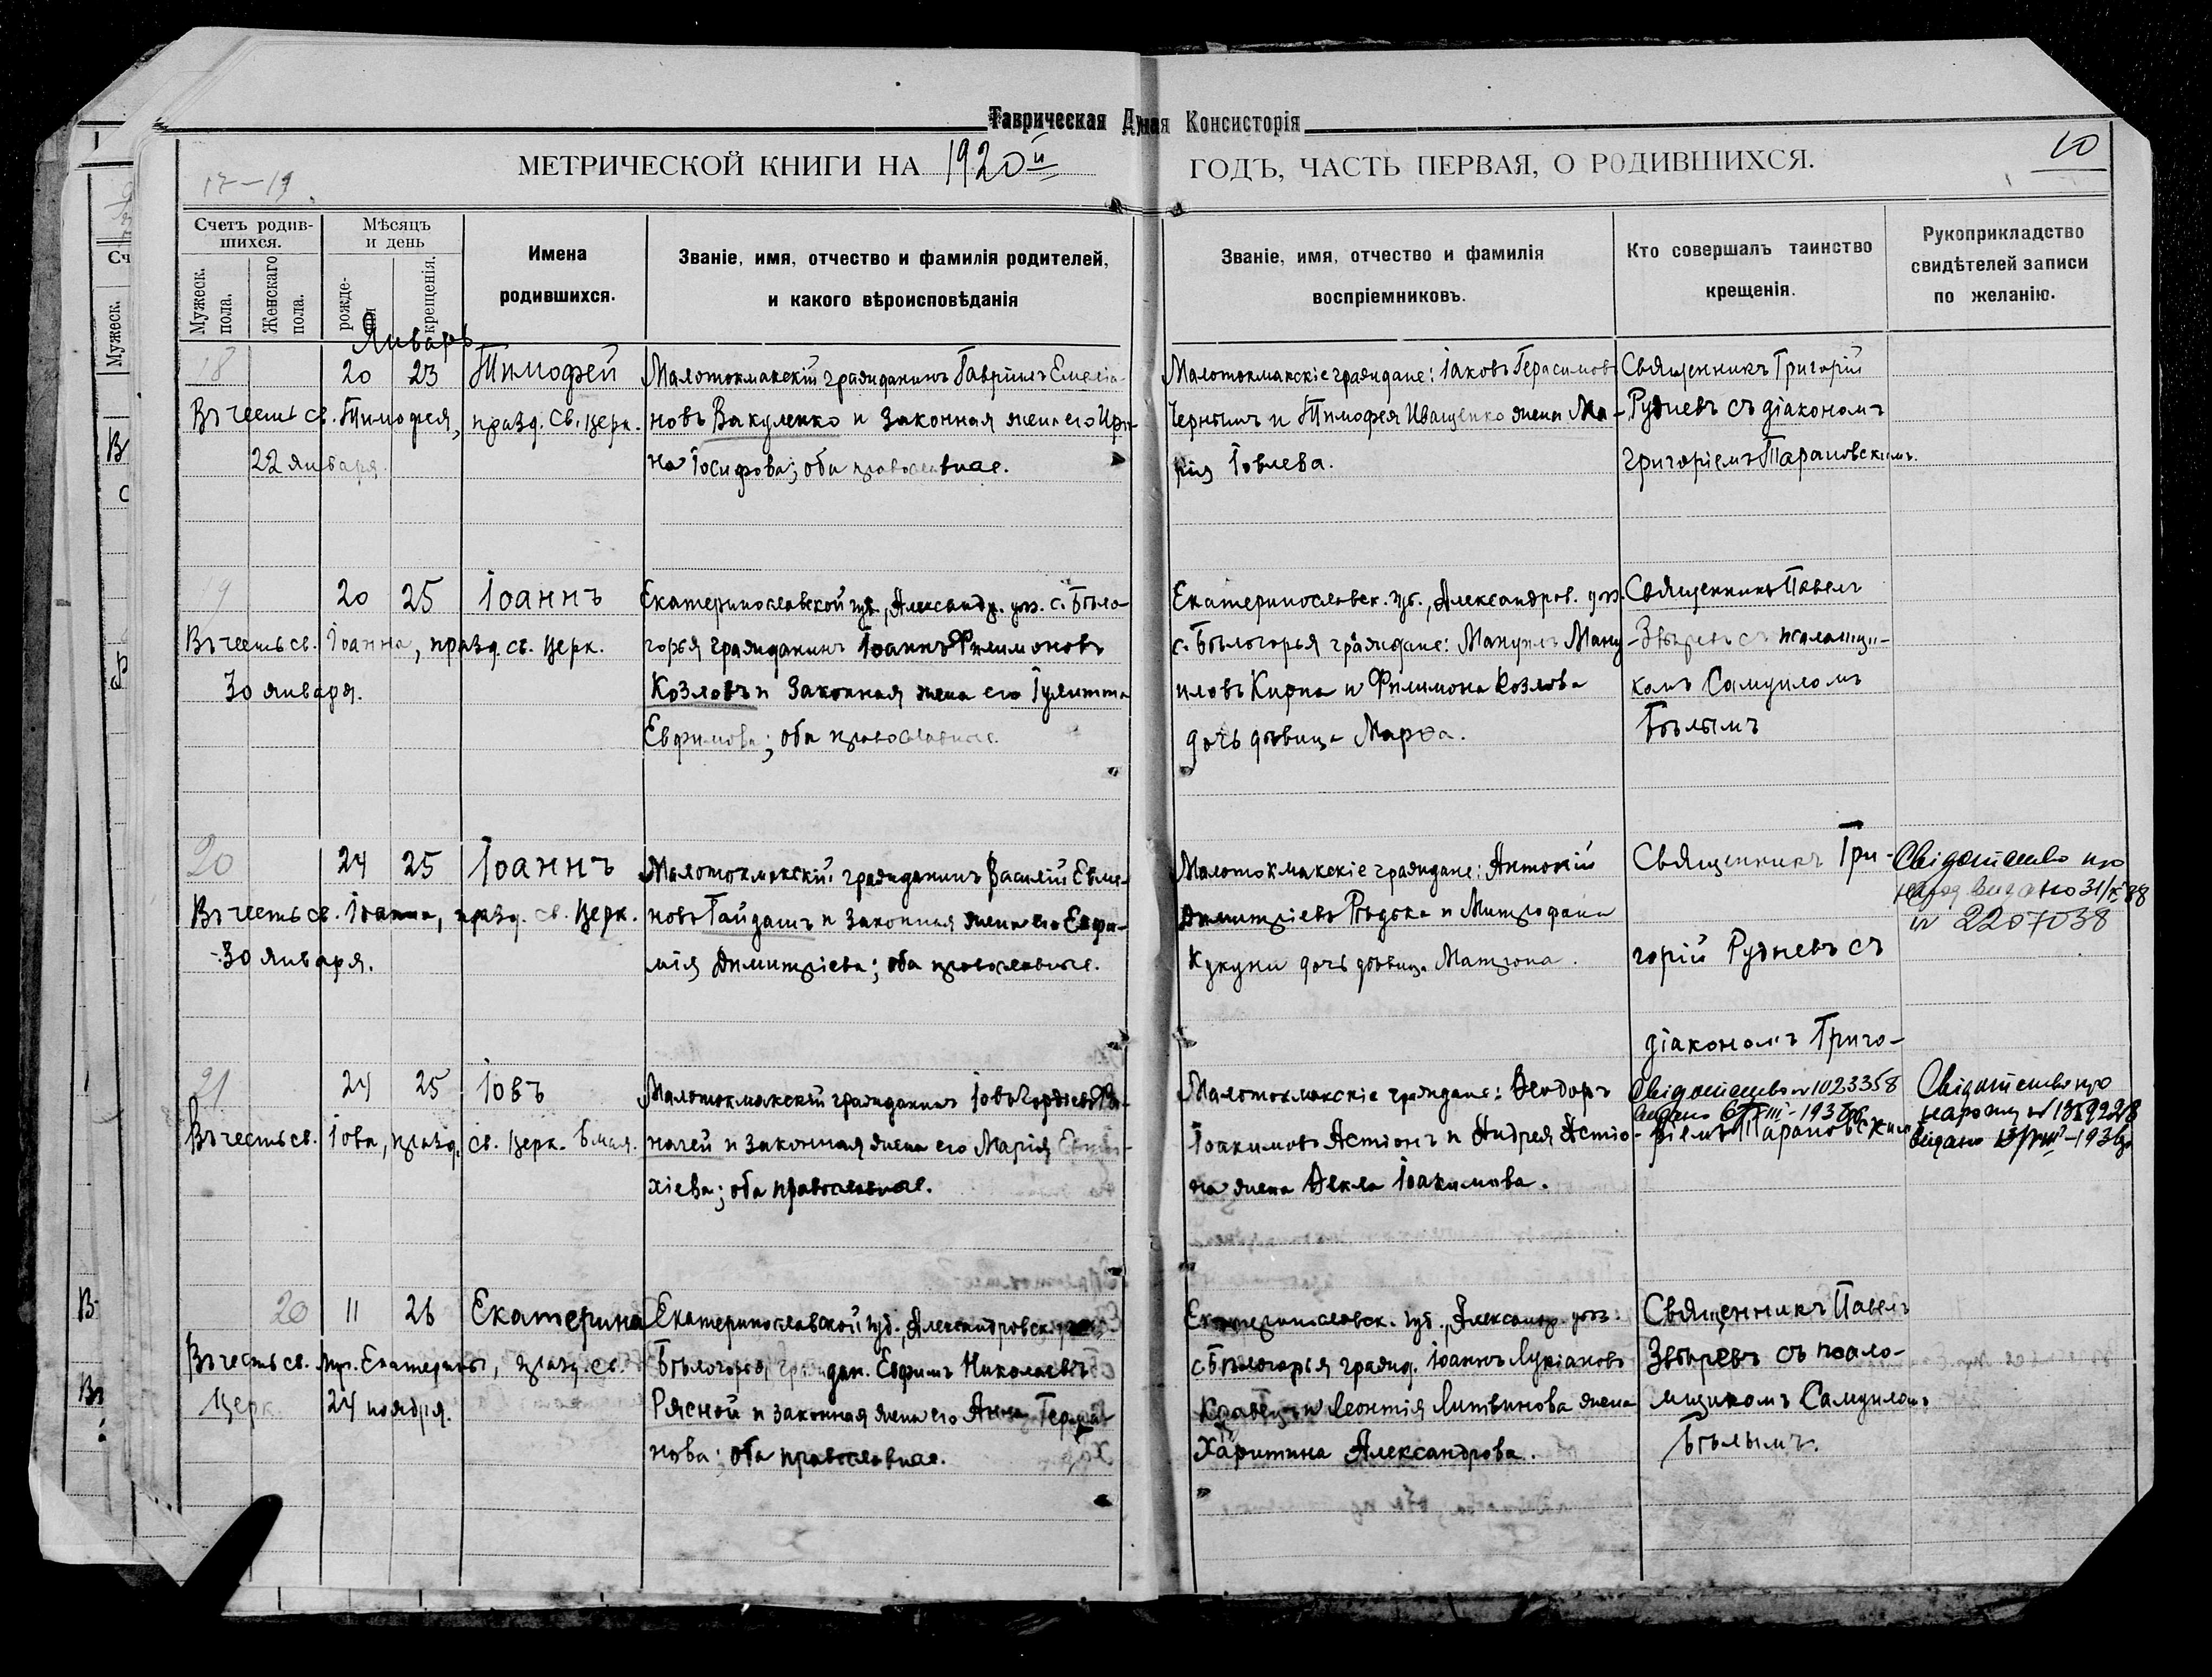 Таврическая Д ная Консисторія
МЕТРИЧЕСКОЙ КНИГИ НА 1920й ГОДЪ, ЧАСТЬ ПЕРВАЯ, О РОДИВШИХСЯ.
10
17-19.
Счетъ родив-
шихся.
Мужеск.
пола.
Женскаго
пола.
Мѣсяцъ
и день
рожде-
нія
крещенія.
Имена
родившихся.
Званіе, имя, отчество и фамилія родителей,
и какого вѣроисповѣданія
Званіе, имя, отчество и фамилія
воспріемниковъ.
Кто совершалъ таинство
крещенія.
Рукоприкладство
свидѣтелей записи
по желанію.
Январь
18 20 23 Тимофей
Въ честь св. Тимофея, празд. св. церк.
22 января.
Малотокмакскій гражданинъ Гавріилъ Емеліа-
новъ Вакуленко и законная жена его Ири-
на Іосифова; оба православные.
Малотокмакскіе граждане: Іаковъ Герасимовъ
Чернышъ и Тимофея Иващенко жена Ма-
рія Іовлева.
Священникъ Григорій
Рудневъ съ діакономъ
Григоріемъ Тарановскимъ.
19 20 25 Іоаннъ
Въ честь св. Іоанна, празд. св. церк.
30 января.
Екатеринославской губ., Александр. уѣз. с. Бѣло-
горья гражданинъ Іоаннъ Филимоновъ
Козловъ и законная жена его Іулитта
Евфимова; оба православные.
Екатеринославск. губ., Александров. уѣз.
с. Бѣлогорья граждане: Мануилъ Ману-
иловъ Кирпа и Филимона Козлова
дочь дѣвица Марѳа.
Священникъ Павелъ
Звѣревъ съ псаломщи-
комъ Самуиломъ
Бѣлымъ
20 24 25 Іоаннъ
Въ честь св. Іоанна, празд. св. церк.
30 января.
Малотокмакскій гражданинъ Василій Евме-
новъ Гайдашъ и законная жена его Евфи-
мія Димитріева; оба православные.
Малотокмакскіе граждане: Антоній
Димитріевъ Рѣдька и Митрофана
Кукуна дочь дѣвица Матрона.
Священникъ Гри-
горій Рудневъ съ
діакономъ Григо-
ріемъ Тарановскимъ
Свідоцтво про
народ видано 31/ 38
№ 2207038
21 24 25 Іовъ
Въ честь св. Іова, празд. св. церк. 6 мая.
Малотокмакскій гражданинъ Іовъ Гордіевъ
начей и законная жена его Марія
хіева; оба православные.
Малотокмакскіе граждане: Ѳеодоръ
Іоакимовъ Астіонъ и Андрея Астіо-
на жена Ѳекла Іоакимова.
Свідоцтво № 1023358
Свідоцтво про
видано
20 11 26 Екатерина
Въ честь св. муч. Екатерины, празд. св.
церк. 24 ноября.
Екатеринославской губ., Александровск.
Бѣлогорья, граждан. Евфимъ Николаевъ
Рясной и законная жена его Анна Герма-
нова; оба православные.
Екатеринославск. губ., Александр. уѣз.
с. Бѣлогорья гражд. Іоаннъ Лукіановъ
Кравецъ и Леонтія Литвинова жена
Харитина Александрова.
Священникъ Павелъ
Звѣревъ съ псало-
мщикомъ Самуиломъ
Бѣлымъ.